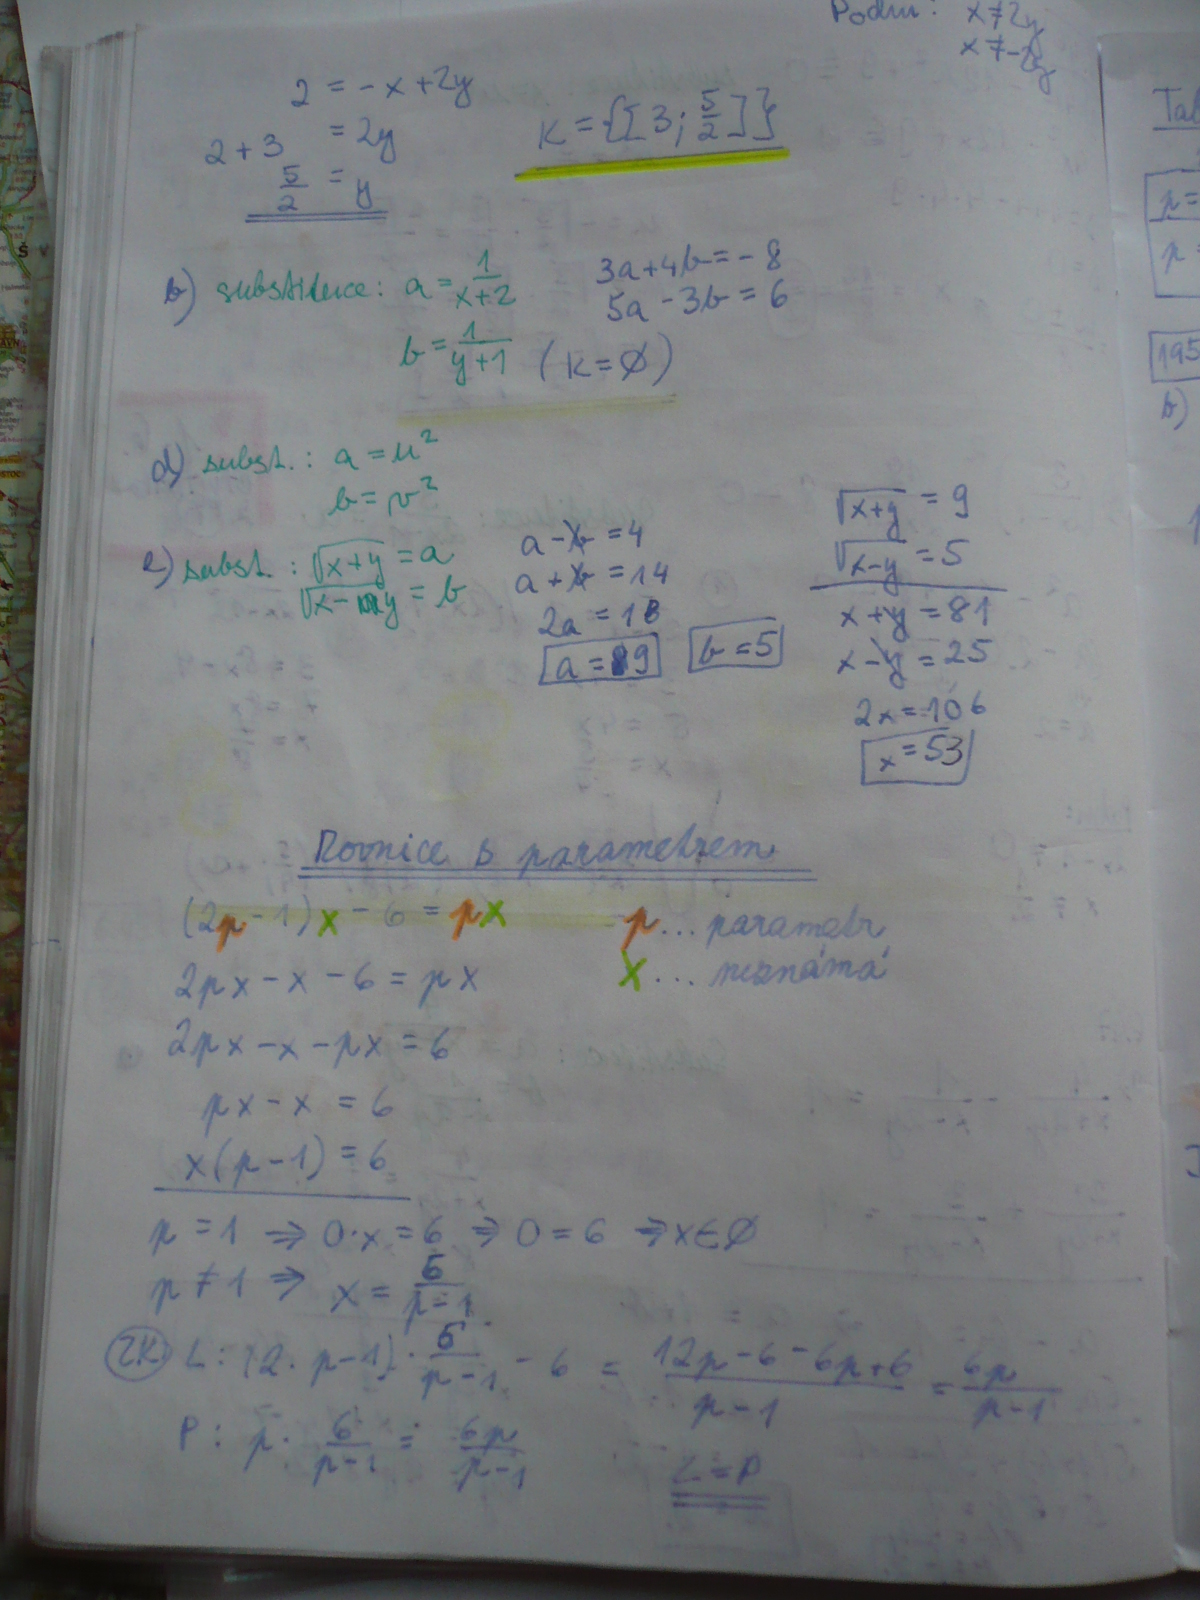 Podm: x≠2y
x≠-2y
2 = -x+2y
2+3 = 2y
5/2 = y
K={[3; 5/2]}
b) substituce: a = 1/(x+2)
b = 1/(y+1)
3a+4b=-8
5a-3b=6
(K=∅)
d) subst.: a = u²
b = v²
e) subst.: √(x+y) = a
√(x-y) = b
a-b=4
a+b=14
2a=18
a=9
b=5
√(x+y) = 9
√(x-y) = 5
x+y=81
x-y=25
2x=106
x=53
Rovnice s parametrem
(2p-1)x-6=px
p... parametr
x... neznámá
2px-x-6=px
2px-x-px=6
px-x=6
x(p-1)=6
p=1 ⇒ 0·x=6 ⇒ 0=6 ⇒ x∈∅
p≠1 ⇒ x = 6/(p-1)
ZK. L: (2·p-1)· 6/(p-1) - 6 = (12p-6-6p+6)/(p-1) = 6p/(p-1)
P: p· 6/(p-1) = 6p/(p-1)
L=P
Tab
p=
195
b)